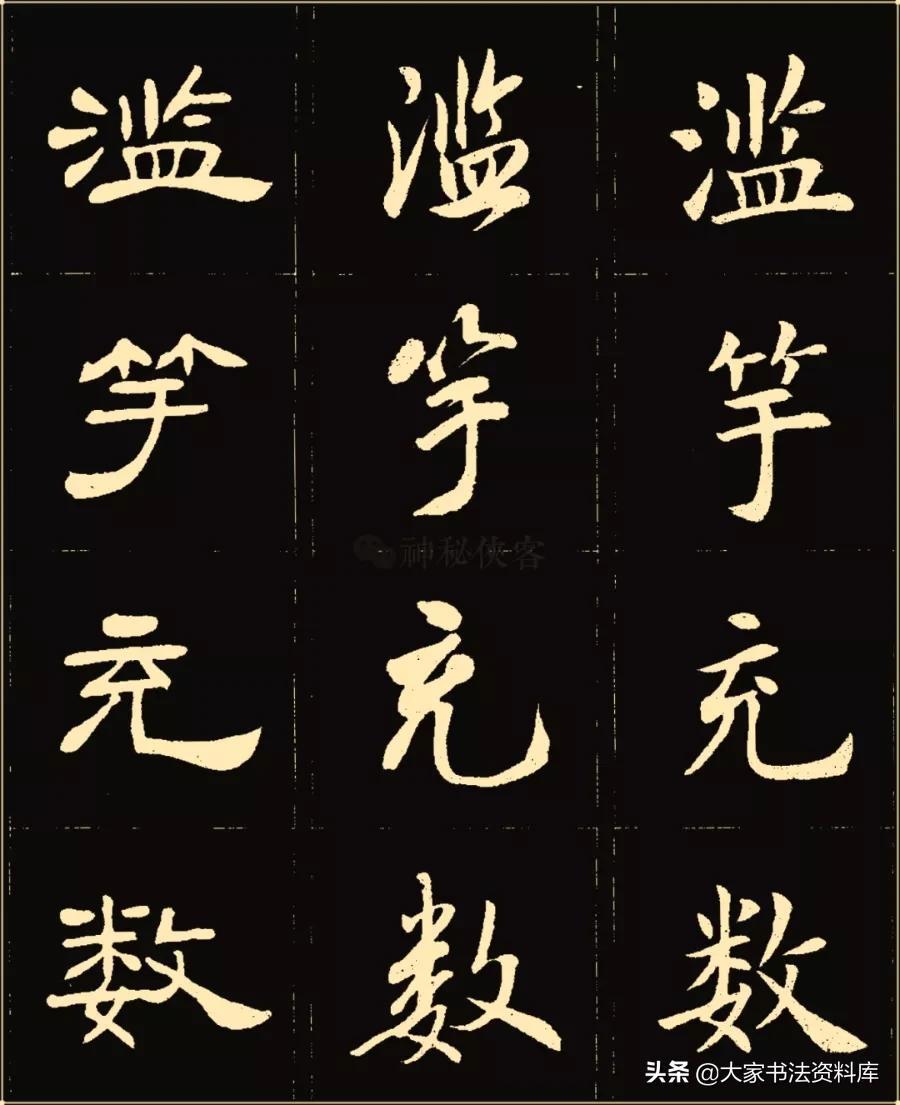 滥 滥 滥
竽 竽 竽
神秘侠客
充 充 充
数 数 数
头条 @大家书法资料库